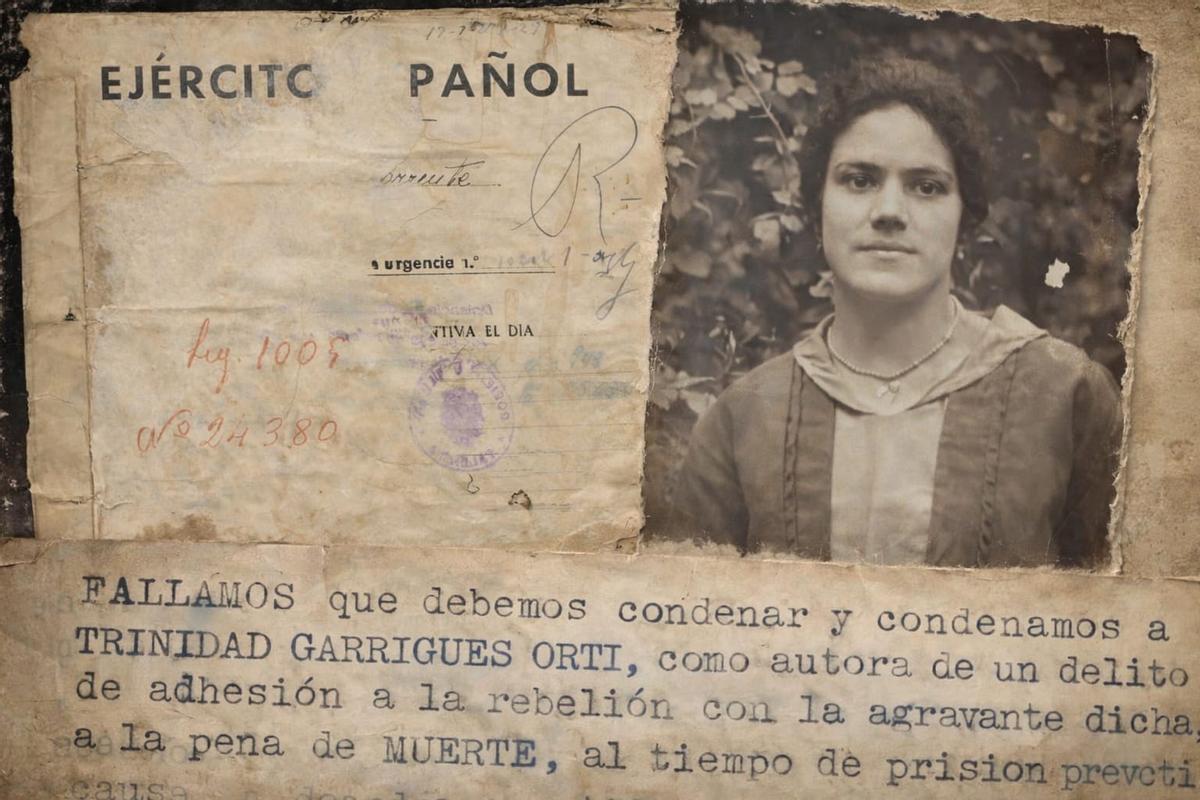 EJÉRCITO PAÑOL
R-
urgencia 1.º
NTIVA EL DIA
Leg. 1005
Nº 24380
FALLAMOS que debemos condenar y condenamos a
TRINIDAD GARRIGUES ORTI, como autora de un delito
de adhesión a la rebelión con la agravante dicha,
a la pena de MUERTE, al tiempo de prision prevcti
causa